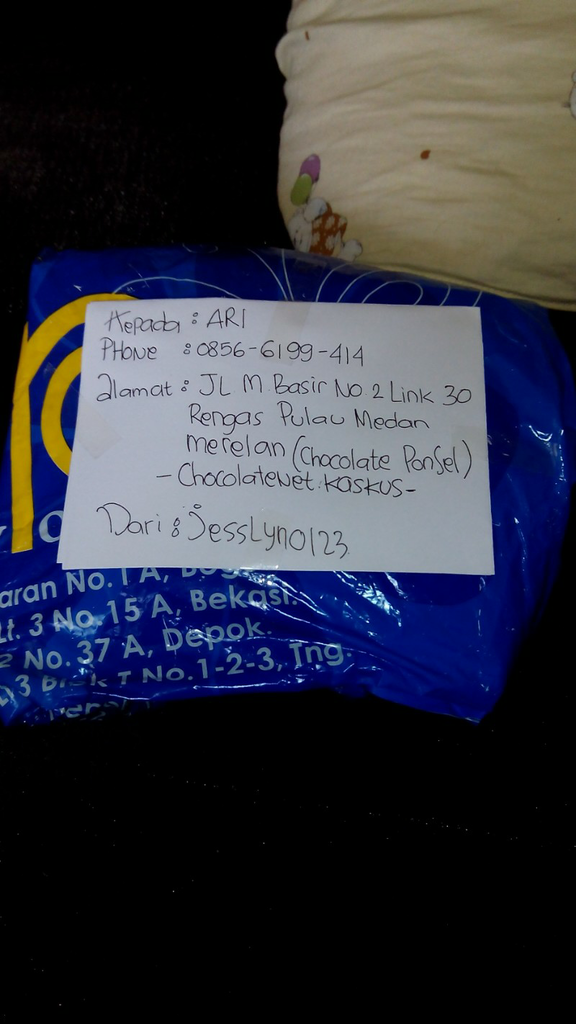 Kepada : ARI
PHONE : 0856-6199-414
Alamat : JL M. Basir No 2 Link 30
Rengas Pulau Medan
Merelan (Chocolate Ponsel)
- ChocolateNet.KASKUS -
Dari : JessLyn0123
aran No. 1 A,
Lt. 3 No 15 A, Bekasi.
No. 37 A, Depok.
No. 1-2-3, Tng